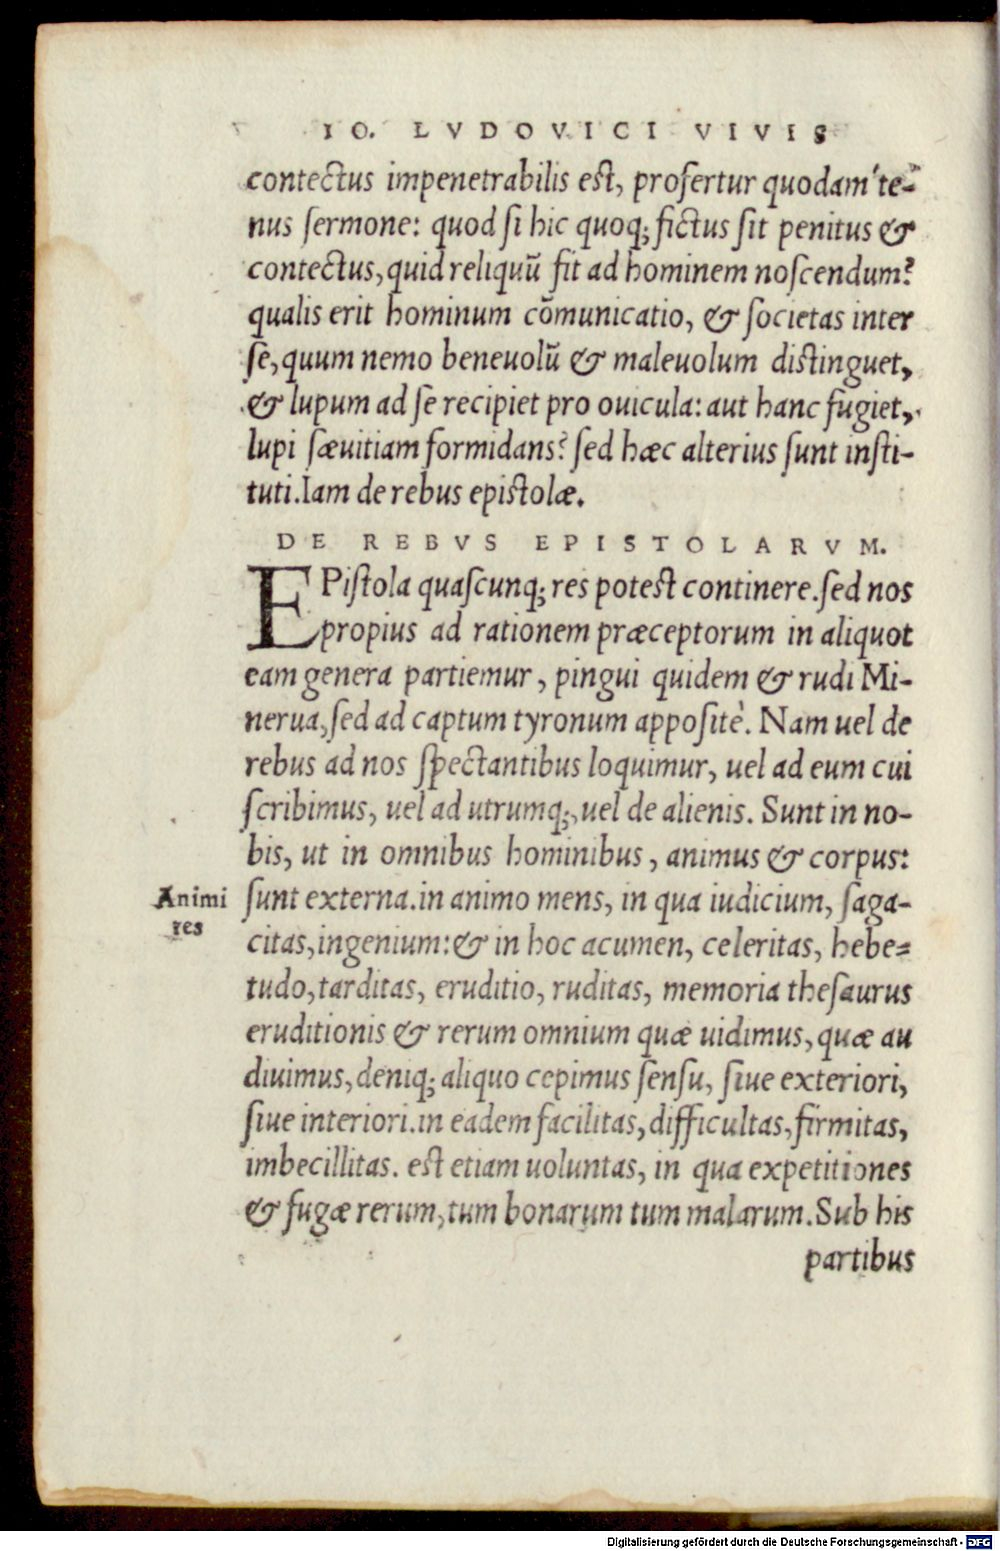 IO. LVDOVICI VIVIS
contectus impenetrabilis est, profertur quodam te-
nus sermone: quod si hic quoq; fictus sit penitus &
contectus, quid reliquũ fit ad hominem noscendum?
qualis erit hominum cõmunicatio, & societas inter
se, quum nemo beneuolũ & maleuolum distinguet,
& lupum ad se recipiet pro ouicula: aut hanc fugiet,
lupi sæuitiam formidans? sed hæc alterius sunt insti-
tuti. Iam de rebus epistolæ.
DE REBVS EPISTOLARVM.
EPistola quascunq; res potest continere. sed nos
propius ad rationem præceptorum in aliquot
eam genera partiemur, pingui quidem & rudi Mi-
nerua, sed ad captum tyronum appositè. Nam uel de
rebus ad nos spectantibus loquimur, uel ad eum cui
scribimus, uel ad utrumq;, uel de alienis. Sunt in no-
bis, ut in omnibus hominibus, animus & corpus:
Animi
res
sunt externa. in animo mens, in qua iudicium, saga-
citas, ingenium: & in hoc acumen, celeritas, hebe-
tudo, tarditas, eruditio, ruditas, memoria thesaurus
eruditionis & rerum omnium quæ uidimus, quæ au
diuimus, deniq; aliquo cepimus sensu, siue exteriori,
siue interiori. in eadem facilitas, difficultas, firmitas,
imbecillitas. est etiam uoluntas, in qua expetitiones
& fugæ rerum, tum bonarum tum malarum. Sub his
partibus
Digitalisierung gefördert durch die Deutsche Forschungsgemeinschaft - DFG